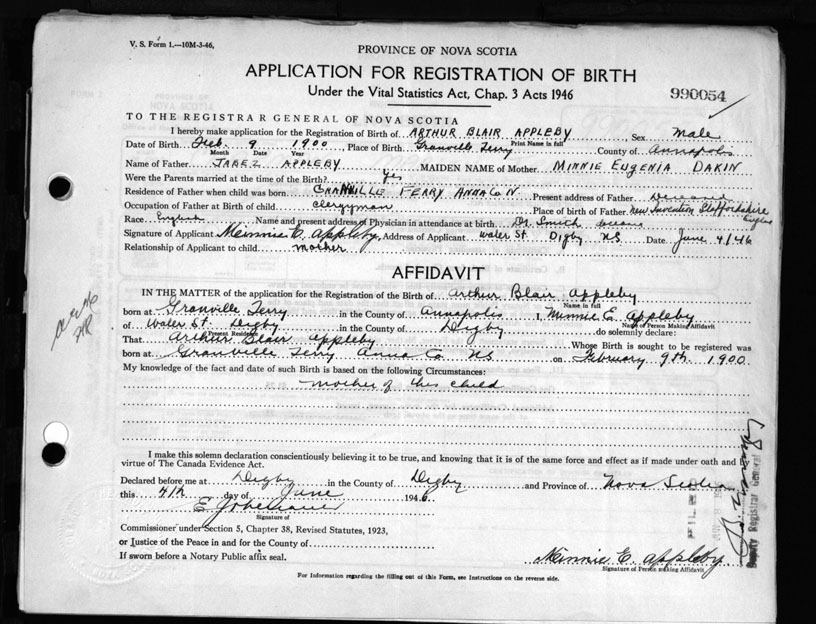 V. S. Form 1.—10M-3-46,
PROVINCE OF NOVA SCOTIA
APPLICATION FOR REGISTRATION OF BIRTH
990054
Under the Vital Statistics Act, Chap. 3 Acts 1946
TO THE REGISTRAR GENERAL OF NOVA SCOTIA
I hereby make application for the Registration of Birth of ARTHUR BLAIR APPLEBY, Sex Male
Print Name in full
Date of Birth Feb. 9 1900, Place of Birth Granville Ferry County of Annapolis
Month Date Year
Name of Father JABEZ APPLEBY MAIDEN NAME of Mother MINNIE EUGENIA DAKIN
Were the Parents married at the time of the Birth? Yes
Residence of Father when child was born GRANVILLE FERRY ANNA CO N. Present address of Father Deceased
Occupation of Father at Birth of child clergyman Place of birth of Father New Invention Staffordshire England
Race English Name and present address of Physician in attendance at birth Dr. Smith
Signature of Applicant Minnie E. Appleby, Address of Applicant Water St. Digby NS Date June 4/46
Relationship of Applicant to child mother
AFFIDAVIT
IN THE MATTER of the application for the Registration of the Birth of Arthur Blair Appleby
Name in full
born at Granville Ferry in the County of Annapolis I, Minnie E. Appleby
Name of Person Making Affidavit
of Water St. Digby in the County of Digby do solemnly declare:
Present Residence
That Arthur Blair Appleby Whose Birth is sought to be registered was
born at Granville Ferry Anna Co. NS on February 9th 1900
My knowledge of the fact and date of such Birth is based on the following Circumstances:
mother of this child
I make this solemn declaration conscientiously believing it to be true, and knowing that it is of the same force and effect as if made under oath and by
virtue of The Canada Evidence Act.
Declared before me at Digby in the County of Digby and Province of Nova Scotia
this 4th day of June 1946
Signature of
Commissioner under Section 5, Chapter 38, Revised Statutes, 1923,
or Justice of the Peace in and for the County of
If sworn before a Notary Public affix seal.
Minnie E. Appleby
Signature of Person making Affidavit
For Information regarding the filling out of this Form, see Instructions on the reverse side.
Deputy Registrar General